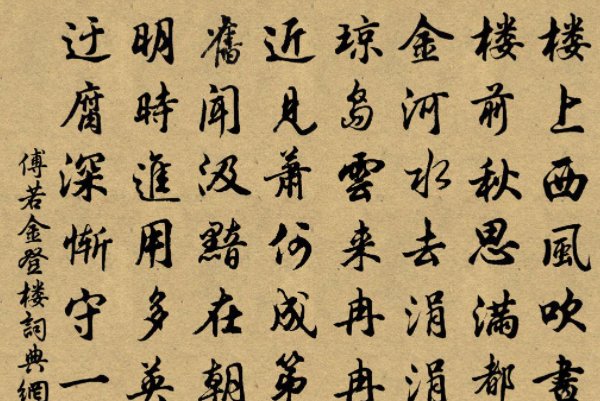 楼上西風吹
楼前秋思满都
金河水去涓涓
琼岛雲来冉冉
近見蕭何成第
舊聞汲黯在朝
明時進用多英
迂腐深惭守一
傅若金登楼詞典網